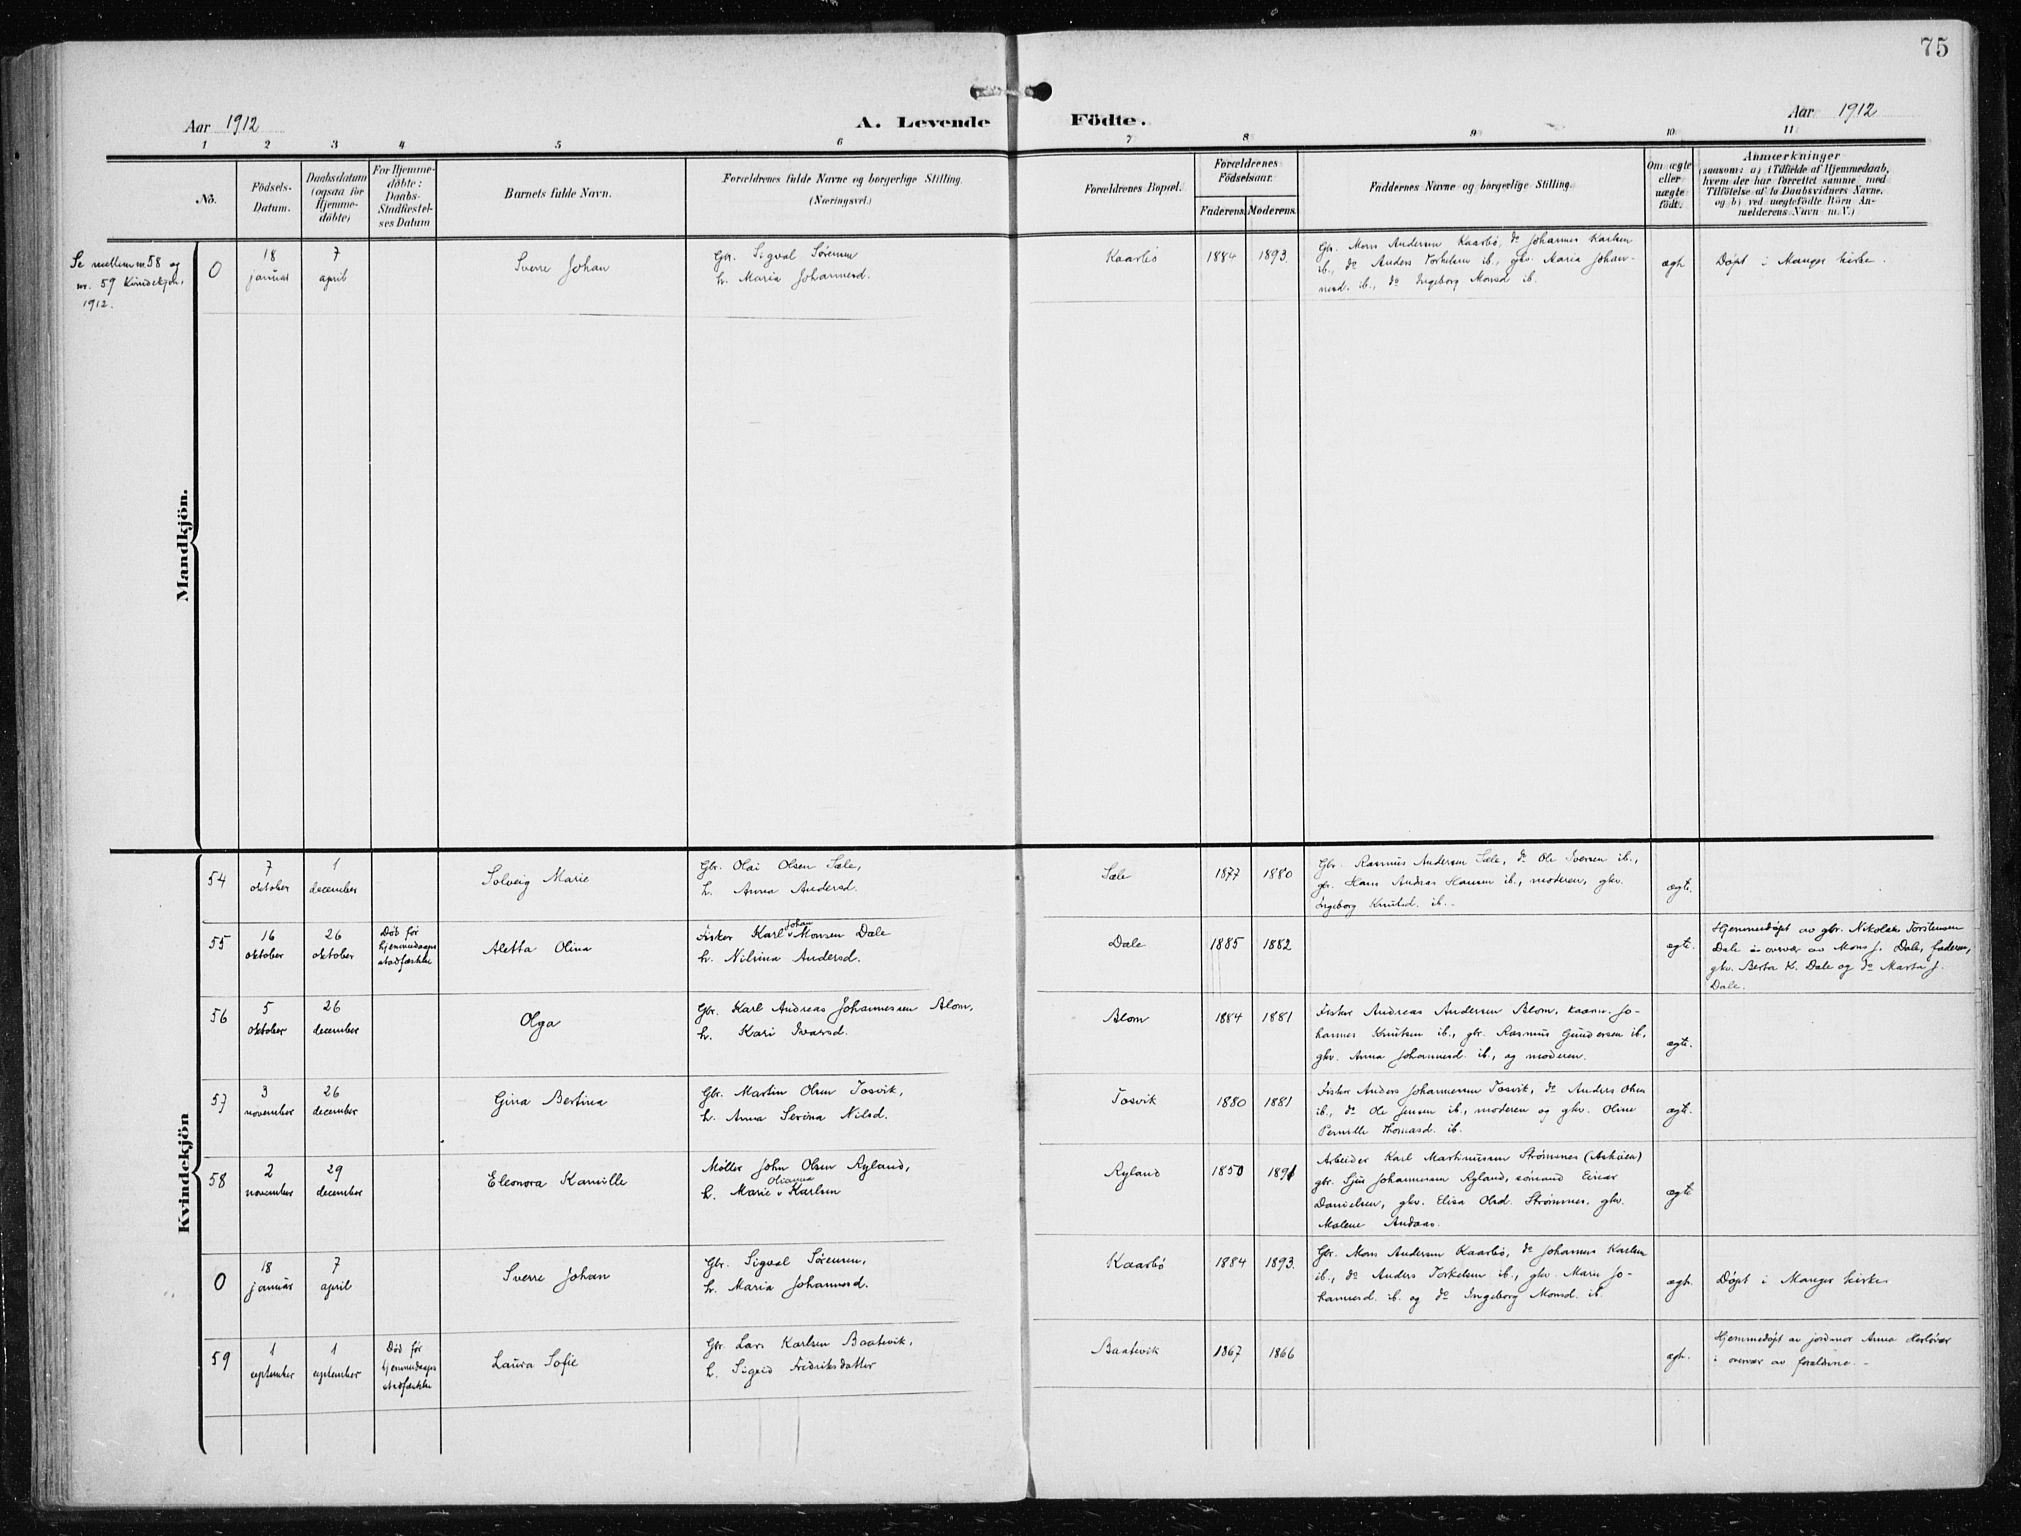 75
Aar 1912
A. Levende Födte.
Aar 1912
1 2 3 4 5 6 7 8 9 10 11
No.
Födsels-
Datum.
Daabsdatum
(ogsaa for
Hjemme-
döbte)
For Hjemme-
döbte:
Daabs-
Stadfæstel-
ses Datum
Barnets fulde Navn.
Forældrenes fulde Navne og borgerlige Stilling.
(Næringsvei.)
Forældrenes Bopæl.
Forældrenes
Födselsaar.
Faderens. Moderens.
Faddernes Navne og borgerlige Stilling.
Om ægte
eller
uægte
födt.
Anmærkninger
(saasom: a) i Tilfælde af Hjemmedaab,
hvem der har forrettet samme med
Tilföielse af to Daabsvidners Navne,
og b) ved uægtefödte Börn An-
melderens Navn m.V.)
Se mellem nr. 58 og
nr. 59 Kvindekjøn,
1912.
Mandkjön.
0
18
januar
7
april
Sverre Johan
Gbr. Sigval Sørensen
h. Maria Johannesd.
Kaarbø
1884
1893.
Gbr. Mons Andersen Kaarbø, do Johannes Karlsen
ib., do Anders Torkelsen ib., gkv. Maria Johan-
nesd. ib., do Ingeborg Monsd ib.
ægt.
Døpt i Manger kirke.
Kvindekjön
54
7
oktober
1
december
Solveig Marie
Gbr. Olai Olsen Sæle,
h. Anna Andersd.
Sæle
1877
1880
Gbr. Rasmus Andersen Sæle, do Ole Iversen ib.,
gbr. Hans Andreas Hansen ib., moderen, gkv.
Ingeborg Knutsd. ib.
ægte.
55
16
oktober
26
oktober
Død før
hjemmedaaps
stadfæstelse
Aletta Olina
Fisker Karl Johan Monsen Dale
h. Nilsina Andersd.
Dale
1885
1882
ægte.
Hjemmedøpt av gbr. Nikolai Torstensen
Dale i overvær av Mons J. Dale, faderen,
gkv. Berta K. Dale og do Marta J.
Dale.
56
5
oktober
26
december
Olga
Gbr. Karl Andreas Johannessen Blom,
h. Kari Ivarsd.
Blom
1884
1881
Fisker Andreas Andersen Blom, kaarm. Jo-
hannes Knutsen ib., gbr. Rasmus Gundersen ib.,
gkv. Anna Johannesd. ib., og moderen.
ægte.
57
3
november
26
december
Gina Bertina
Gbr. Martin Olsen Tosvik,
h. Anna Serina Nilsd.
Tosvik
1880
1881
Fisker Anders Johannessen Tosvik, do Anders Olsen
ib., do Ole Jensen ib., moderen og gkv. Oline
Pernille Thomasd. ib.
ægte.
58
2
november
29
december
Eleonora Kamille
Møller John Olsen Ryland,
h. Marie Olianna Karlsen
Ryland
1850
1891
Arbeider Karl Martinussen Strømnes (Askøen)
gbr. Sjur Johannessen Ryland, sømand Einar
Danielsen, gkv. Elisa Olsd. Strømnes, gkv.
Malene Andaas.
ægte
0
18
januar
7
april
Sverre Johan
Gbr. Sigval Sørensen,
h. Maria Johannesd.
Kaarbø
1884
1893.
Gbr. Mons Andersen Kaarbø, do Johannes Karlsen
ib., do Anders Torkelsen ib., gkv. Marie Jo-
hannesd. ib. og do Ingeborg Monsd. ib.
ægt.
Døpt i Manger kirke
59
1
september
1
september
Død før
hjemmedaaps
stadfæstelse
Laura Sofie
Gbr. Lars Karlsen Baatevik,
h. Sigrid Fredriksdatter
Baatevik
1867
1866
ægt.
Hjemmedøpt av jordmor Anna Herløvær
i overvær av forældrene. –